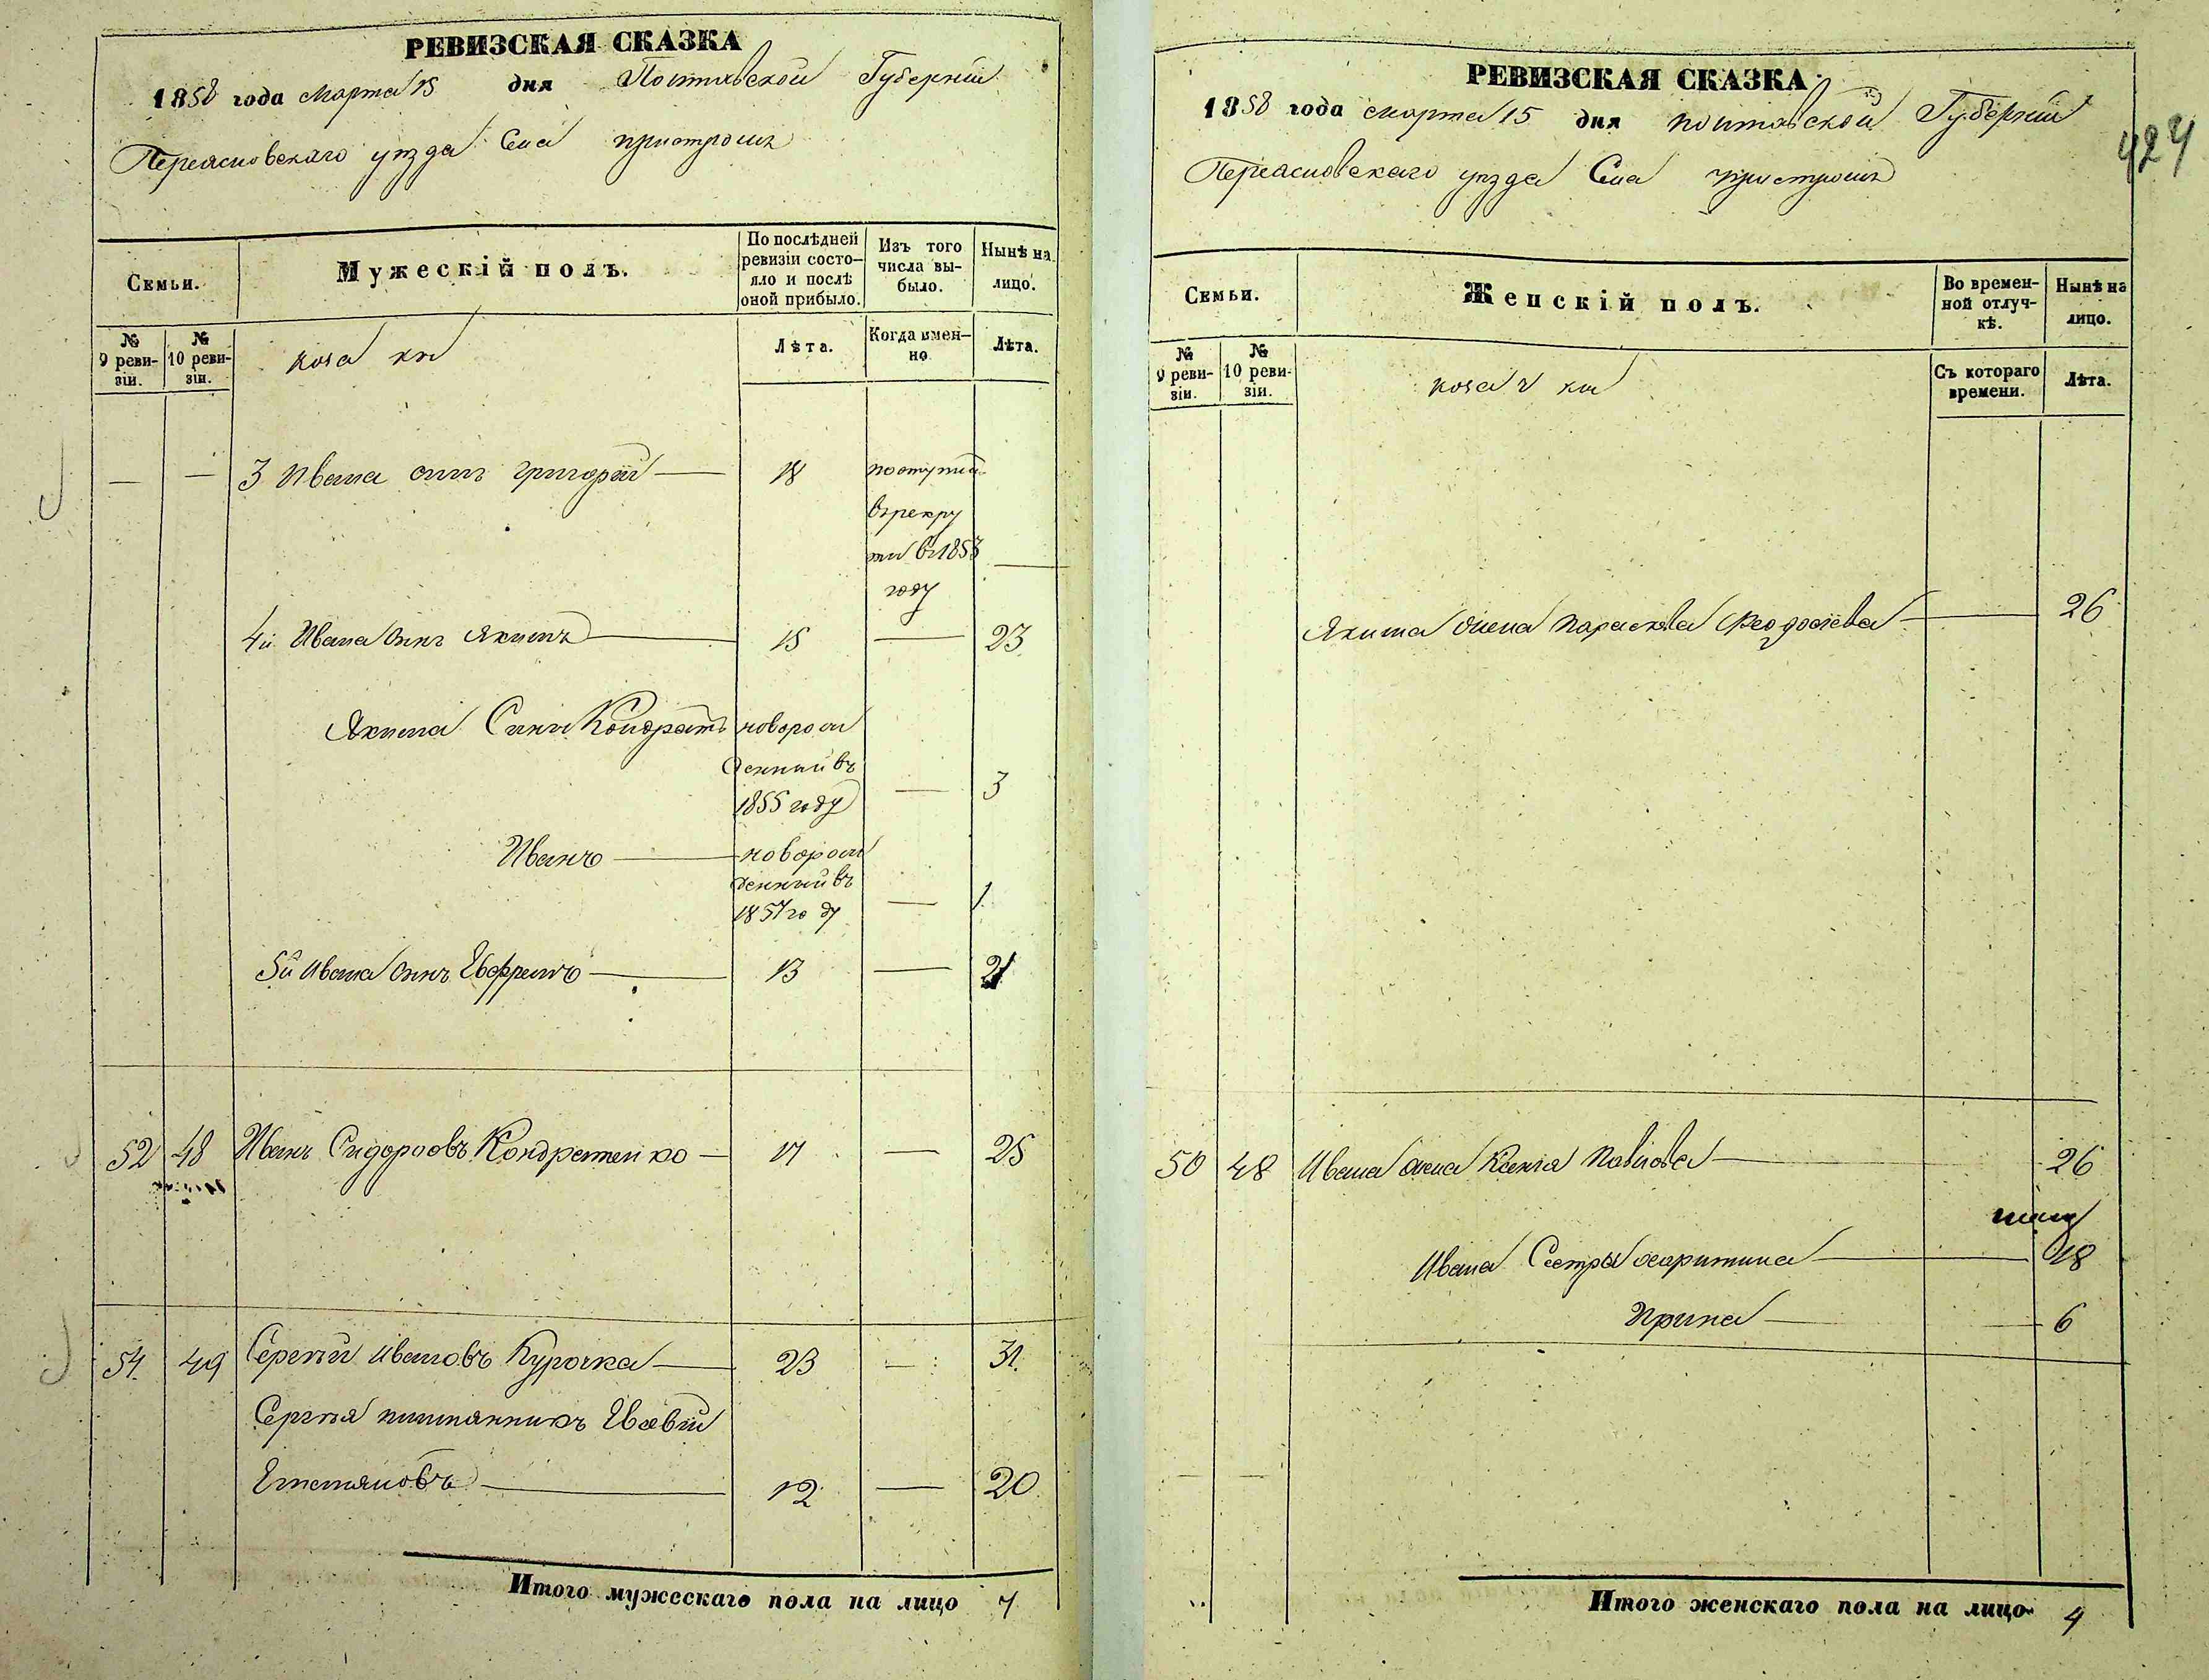 РЕВИЗСКАЯ СКАЗКА
1858 года марта 15 дня Полтавской Губерніи
Переясловскаго уѣзда Села пристромъ
Семьи.
Мужескій полъ.
По послѣдней ревизіи состо-
яло и послѣ
оной прибыло.
Изъ того
числа вы-
было.
Нынѣ на
лицо.
№
9 реви-
зіи.
№
10 реви-
зіи.
коза ки
Лѣта.
Когда имен-
но
Лѣта.
— — 3 Ивана сынъ григорій — 18 поступил
врекру
ти в 1853
году —
4й Ивана сынъ Якимъ — 15 — 23
Якима Сыны Кондратъ новорож
денный въ
1855 году — 3
Иванъ — новорож
денный въ
1857 году — 1
5й Ивана сынъ Евфремъ — 13 — 21
52 48 Иванъ Сидоровъ Кондратенко — 17 — 25
54 49 Сергѣй Ивановъ Курочка — 23 — 31
Сергѣя питтанникъ Евсѣвій
Емельяновъ — 12 — 20
Итого мужескаго пола на лицо 7
РЕВИЗСКАЯ СКАЗКА
1858 года марта 15 дня полтавской Губерніи
Переясловскаго уѣзда Села пристромъ
424
Семьи.
Женскій полъ.
Во времен-
ной отлуч-
кѣ.
Нынѣ на
лицо.
№
9 реви-
зіи.
№
10 реви-
зіи.
козач ки
Съ котораго
времени.
Лѣта.
Якима жена параскева Феодосіева — 26
50 48 Ивана жена Ксенія Павлова — 26
Ивана Сестры харитина — 18
Ирина — 6
Итого женскаго пола на лицо 4